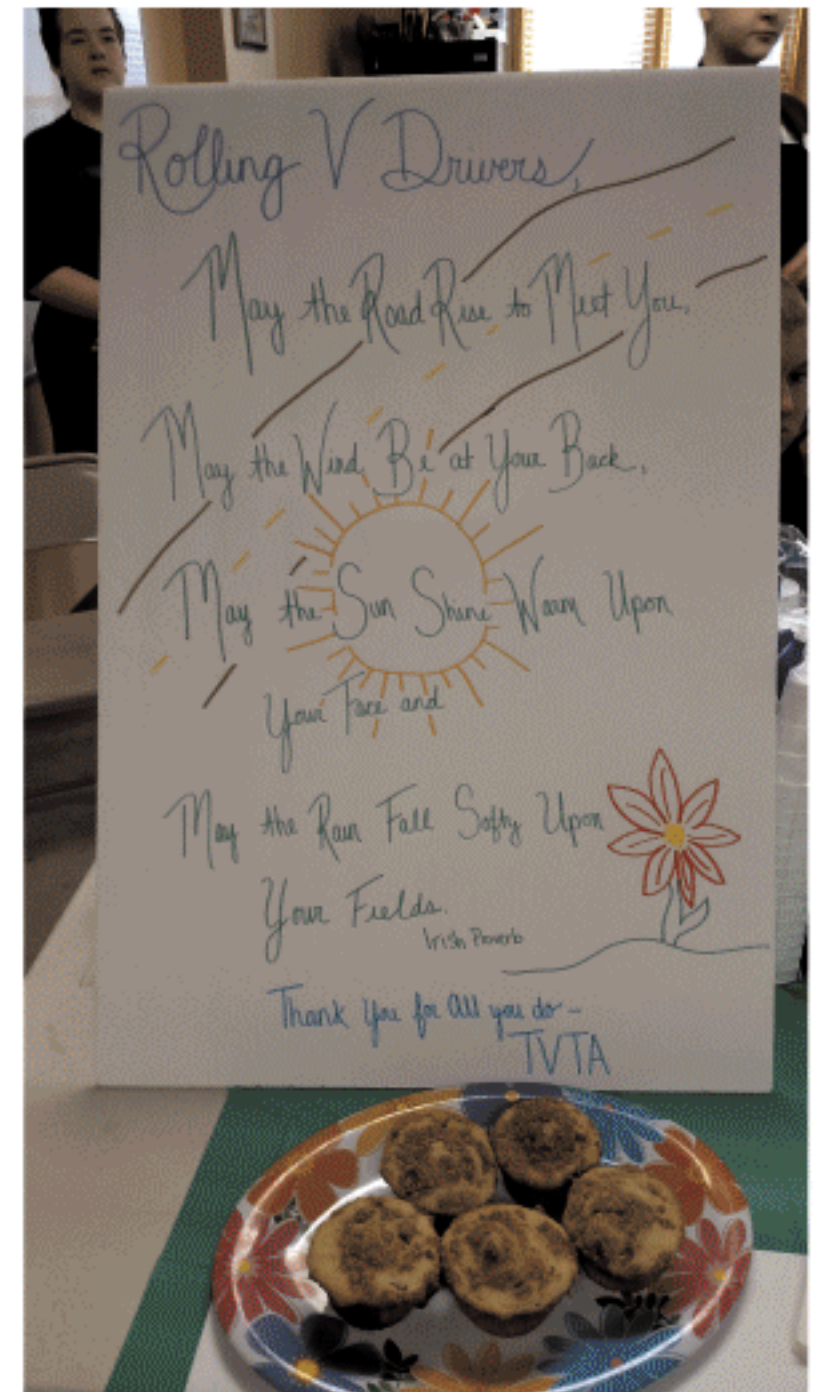 Rolling V Drivers,
May the Road Rise to Meet You,
May the Wind Be at Your Back,
May the Sun Shine Warm Upon
Your Face and
May the Rain Fall Softly Upon
Your Fields.
Irish Proverb
Thank You for All you do -
TVTA